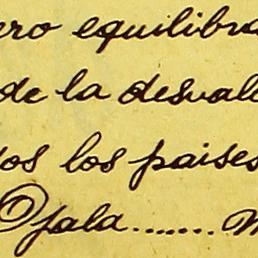 ero equilibra
de la desvalo
dos los paises
Ojala....... m